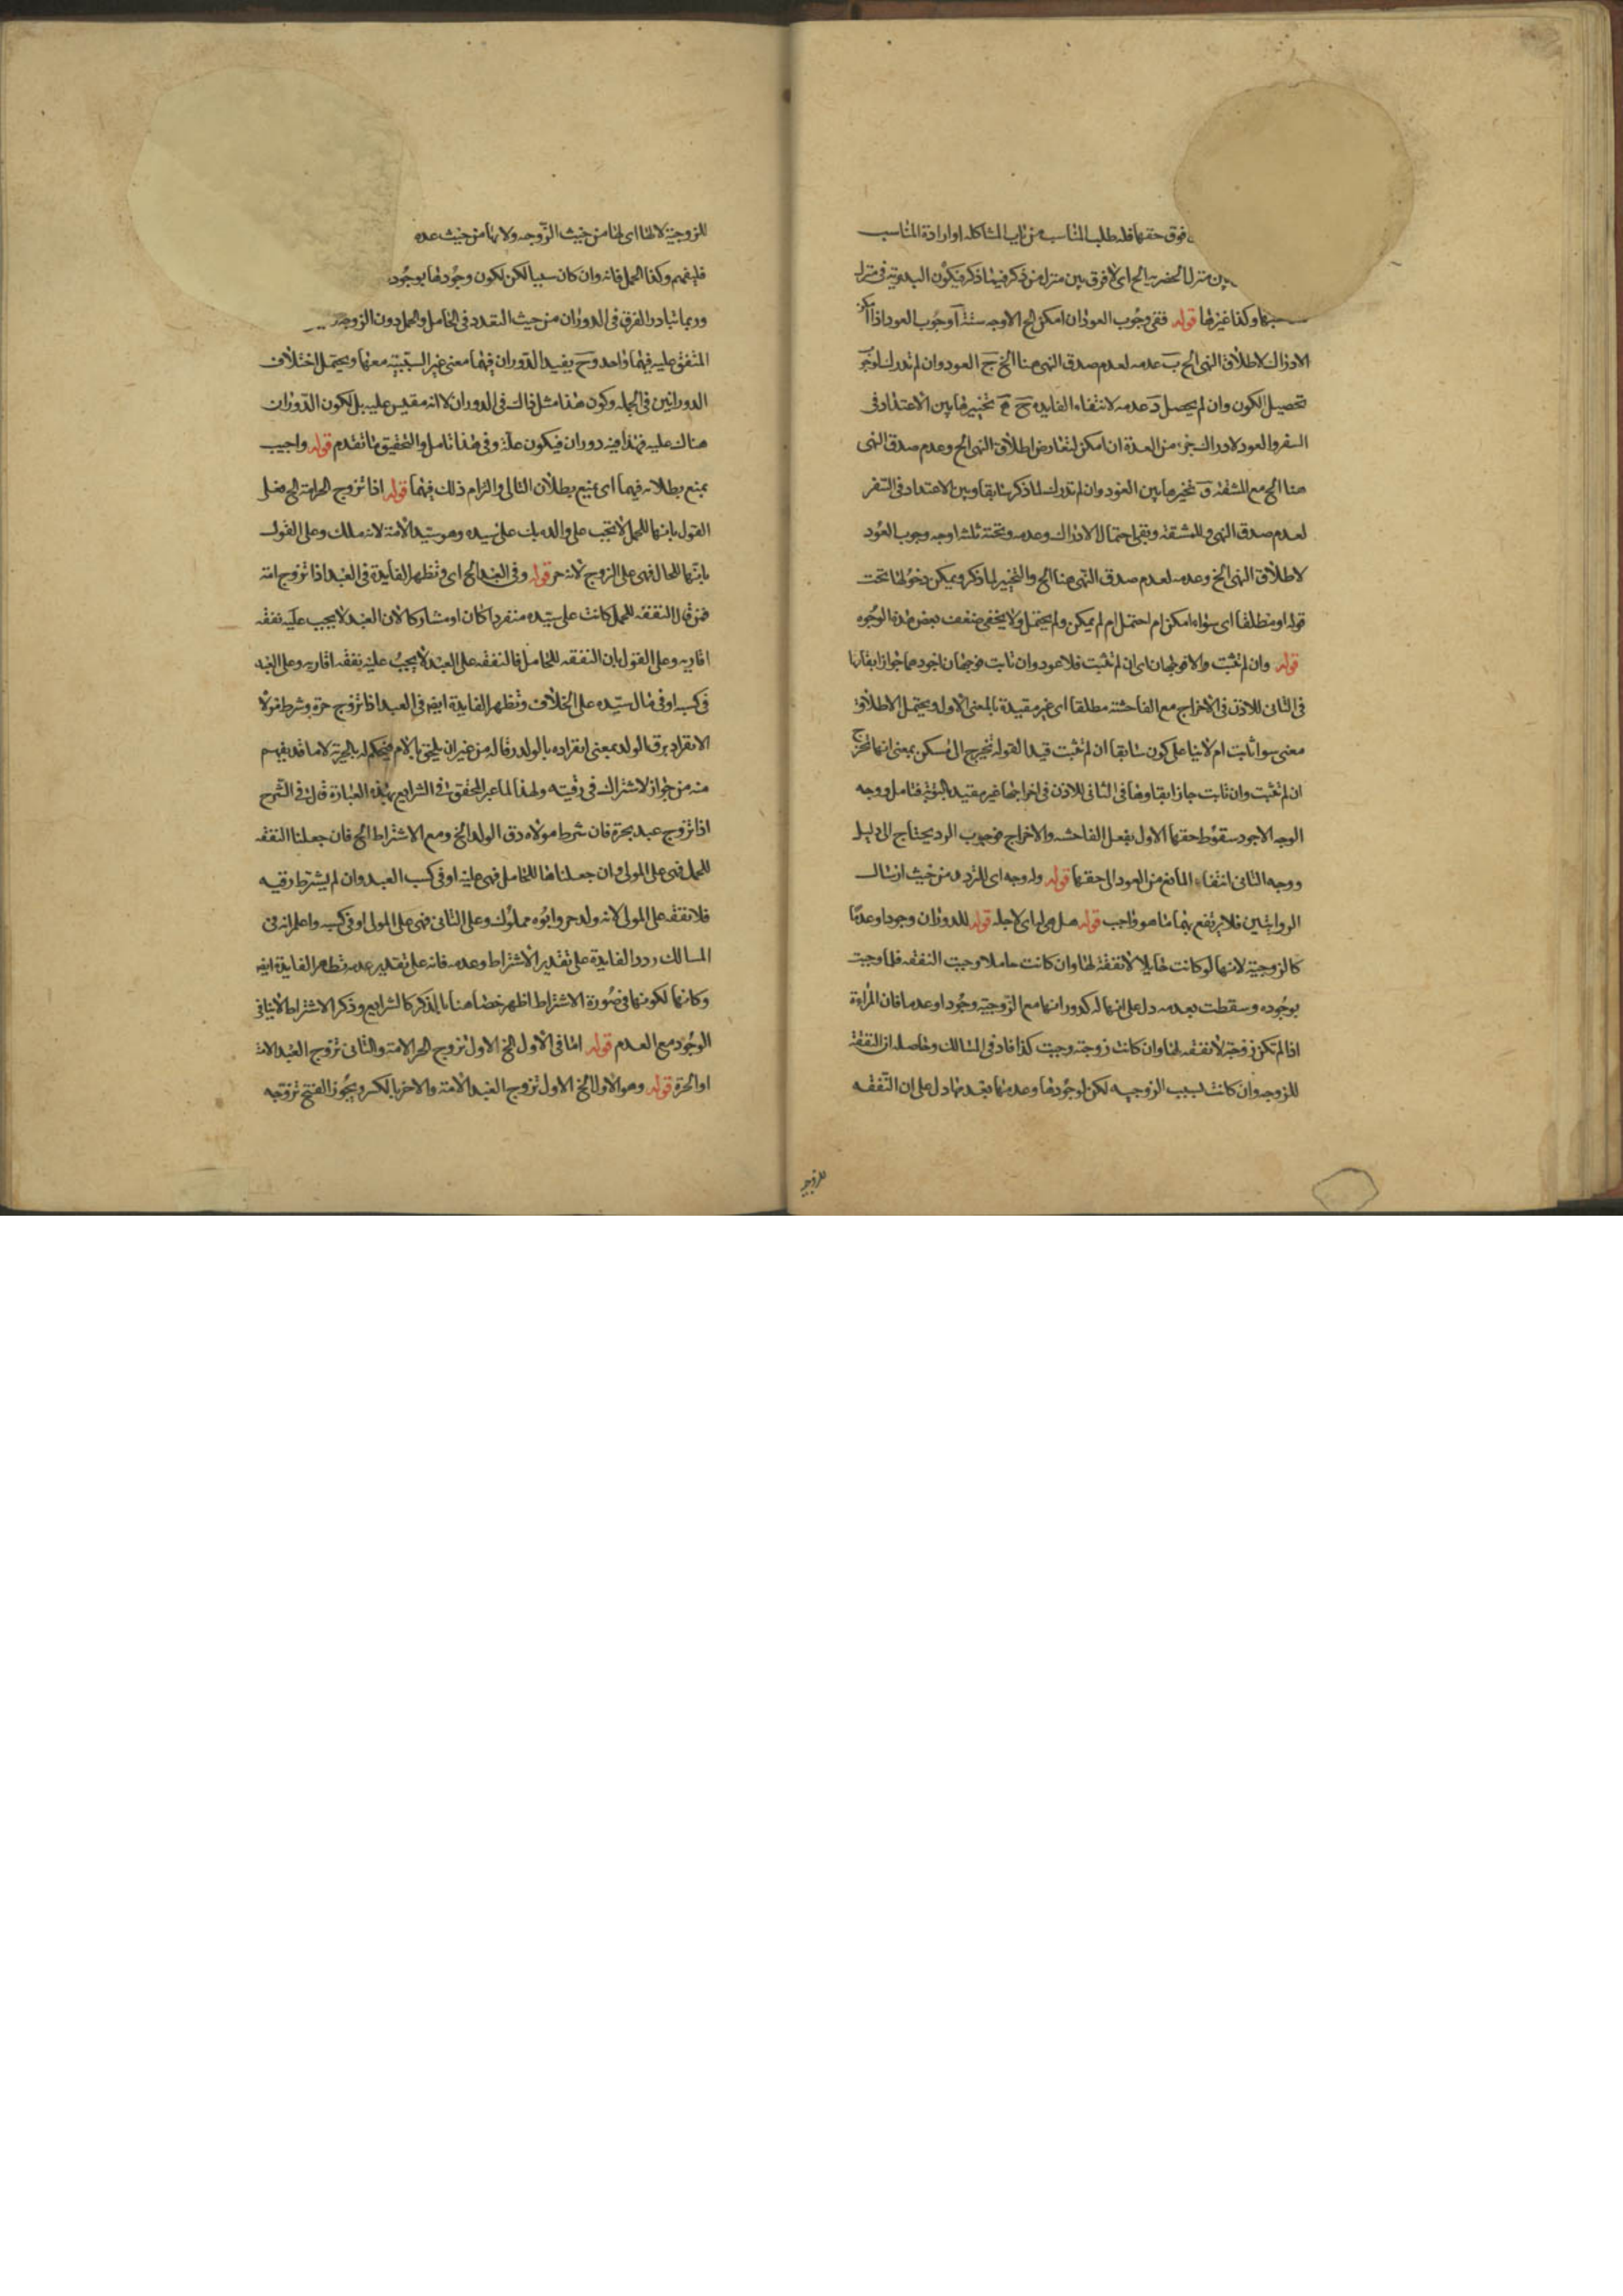 فوق حقها فله طلب المناسب من باب المشاكله او ارادة المناسب
بين منزل الحضرية الخ اى لا فرق بين منزل من ذكر فيما ذكر فيكون البدوية فى منزل
وكذا غيرها قوله ففى وجوب العود ان امكن الخ الاوجه ستة آ وجوب العود اذا امكن
الادراك لاطلاق النهى الخ ب عدمه لعدم صدق النهى هنا الخ ج العود وان لم تدرك لوجوب
تحصيل الكون وان لم يحصل د عدمه لانتفاء الفايده ح ه تخييرها بين الاعتداد فى
السفر والعود لادراك جزء من العدة ان امكن لتعارض اطلاق النهى الخ وعدم صدق النهى
هنا الخ مع المشقة و تخيرها بين العود وان لم تدرك لما ذكر سابقا وبين الاعتداد فى السفر
لعدم صدق النهى وللمشقة وبقى احتمال الادراك وعدمه وتحته ثلثة اوجه وجوب العود
لاطلاق النهى الخ وعدمه لعدم صدق النهى هنا الخ والتخيير لما ذكر ويمكن دخولها تحت
قوله او مطلقا اى سواء امكن ام احتمل ام لم يمكن ولم يحتمل ولا يخفى ضعف بعض هذه الوجوه
قوله وان لم تثبت والا فوجهان اى ان لم تثبت فلا عود وان تابت فوجهان اجودهما جواز ابقائها
فى الثانى للاذن فى الاخراج مع الفاحشة مطلقا اى غير مقيدة بالمعنى الاول ويحتمل الاطلاق
معنى سوا تابت ام لا بنا على كون سابقا ان لم تثبت قيدا لقوله تخرج الى مسكن بمعنى انها تخرج
ان لم تثبت وان تابت جاز ابقاوها فى الثانى للاذن فى اخراجها غير مقيد بالتوبة فتامل ووجه
الوجه الاجود سقوط حقها الاول بفعل الفاحشه والاخراج فوجوب الرد يحتاج الى دليل
ووجه الثانى انتفاء المانع من العود الى حقها قوله وله وجه اى للتردد من حيث ارسال
الروايتين فلا يرتفع بهما ما هو واجب قوله هل هى له اى لاجله قوله للدوران وجودا وعدما
كالزوجية لانها لو كانت حايلا لا نفقة لها وان كانت حاملا وجبت النفقه فلما وجبت
بوجوده وسقطت بعدمه دل على انها له كدورانها مع الزوجية وجودا وعدما فان المراة
اذا لم تكن زوجة لا نفقه لها وان كانت زوجته وجبت كذا افاد فى المسالك وحاصله ان النفقة
للزوجه وان كانت بسبب الزوجيه لكن لوجودها وعدمها بعدمها دل على ان النفقه
للزوجية
للزوجية لا لها اى لها من حيث الزوجه ولا بها من حيث عده
فليفهم وكذا الحمل فانه وان كان سببا لكن لكون وجودها بوجود
وربما يتبادر الفرق فى الدوران من حيث التعدد فى الحامل والحمل دون الزوجة
المتفق عليه فيهما واحد وح يفيد الدوران فيهما معنى غير السببية معها ويحتمل اختلاف
الدورانين فى الجمله وكون هذا مثل ذاك فى الدوران لا انه مقيس عليه بل لكون الدوران
هناك عليه فهذا فيه دوران فيكون علة وفى هذا تامل والتحقيق ما تقدم قوله واجيب
بمنع بطلانه فيهما اى بمنع بطلان التالى والتزام ذلك فيهما قوله اذا تزوج الحر امة الخ فعلى
القول بانها للحمل لا تجب على والده بل على سيده وهو سيد الامة لانه ملك وعلى القول
بانها للحامل فهى على الزوج لانه حر قوله وفى العبد الخ اى وتظهر الفايدة فى العبد اذا تزوج امة
فمن قال النفقه للحمل كانت على سيده منفردا كان او مشاركا لان العبد لا يجب عليه نفقه
اقاربه وعلى القول بان النفقه للحامل فالنفقه على العبد لا يجب عليه نفقه اقاربه وعلى العبد
فى كسبه او فى مال سيده على الخلاف وتظهر الفايدة ايضا فى العبد اذا تزوج حرة وشرط مولاه
الانفراد برق الولد بمعنى انفراده بالولد رقا له من غير ان يلحق بالام فيحكم له بالحرية لا ما قد يفهم
منه من جواز الاشتراك فى رقيته ولهذا لما عبر المحقق فى الشرايع بهذه العبارة قال فى الشرح
اذا تزوج عبد بحرة فان شرط مولاه رق الولد الخ ومع الاشتراط الخ فان جعلنا النفقه
للحمل فهى على المولى وان جعلناها للحامل فهى عليه او فى كسب العبد وان لم يشترط رقيه
فلا نفقه على المولى لانه ولد حر وابوه مملوك وعلى الثانى فهى على المولى او فى كسبه واعلم انه فى
المسالك ردد الفايدة على تقدير الاشتراط وعدمه فانه على تقدير عدمه تظهر الفايدة ايضا
وكانها لكونها فى صورة الاشتراط اظهر خصها هنا بالذكر كالشرايع وذكر الاشتراط لا ينافى
الوجود مع العدم قوله اما فى الاول الخ الاول تزوج الحر الامة والثانى تزوج العبد الامة
او الحرة قوله وهو الاول الخ الاول تزوج العبد الامة والاخر بالكسر ويجوز الفتح تزوجه